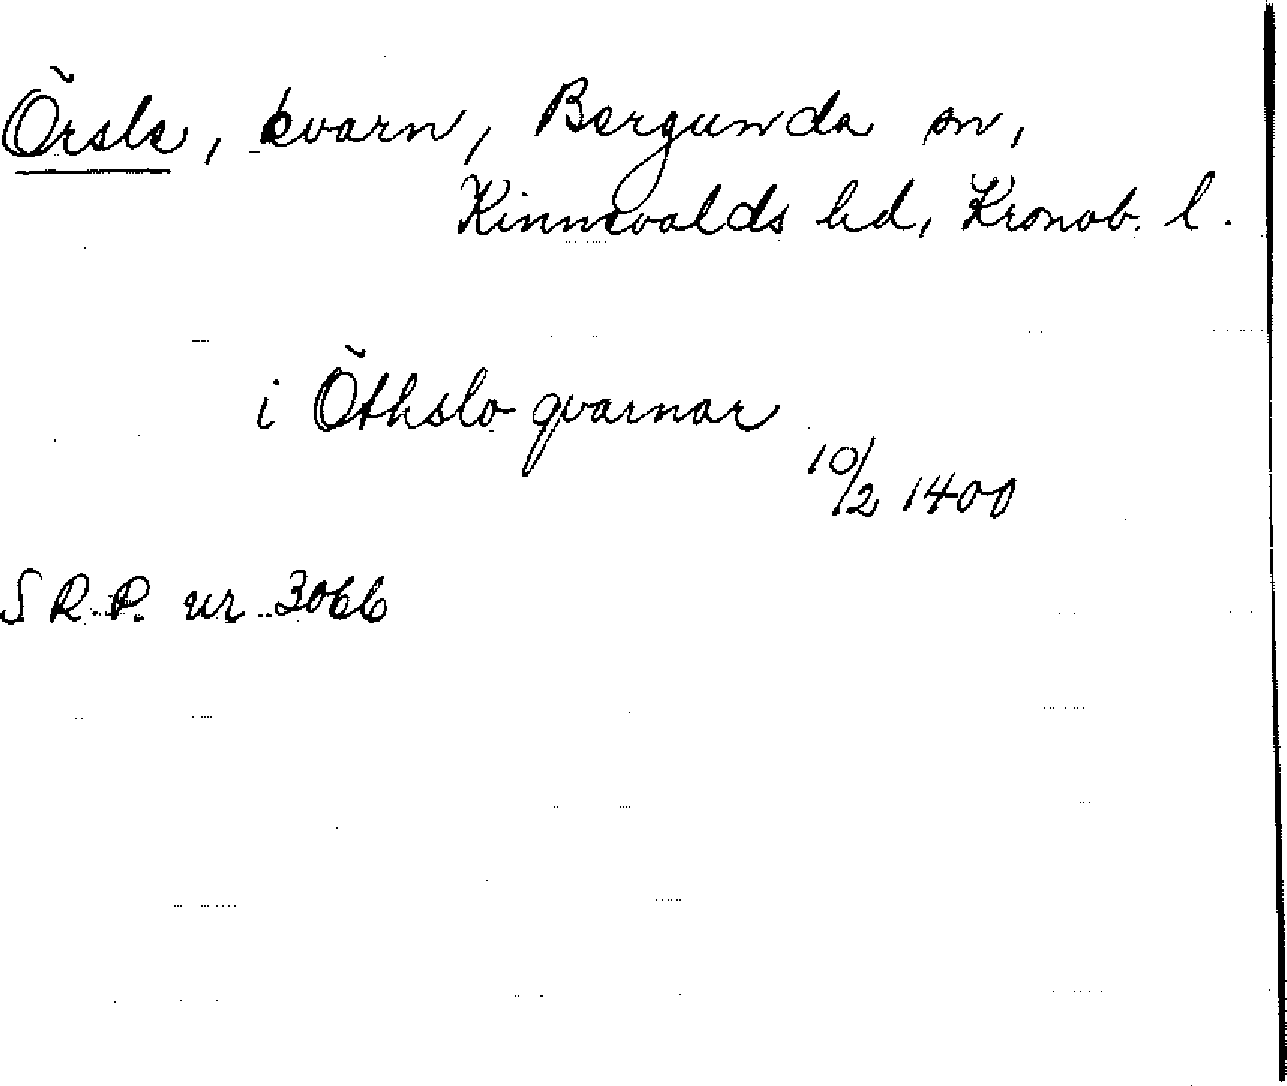 Örsle, kvarn, Bergunda sn,
Kinnevalds hd, Kronob. l.
i Öthslo qvarnar
10/2 1400
S R.P. nr 3066